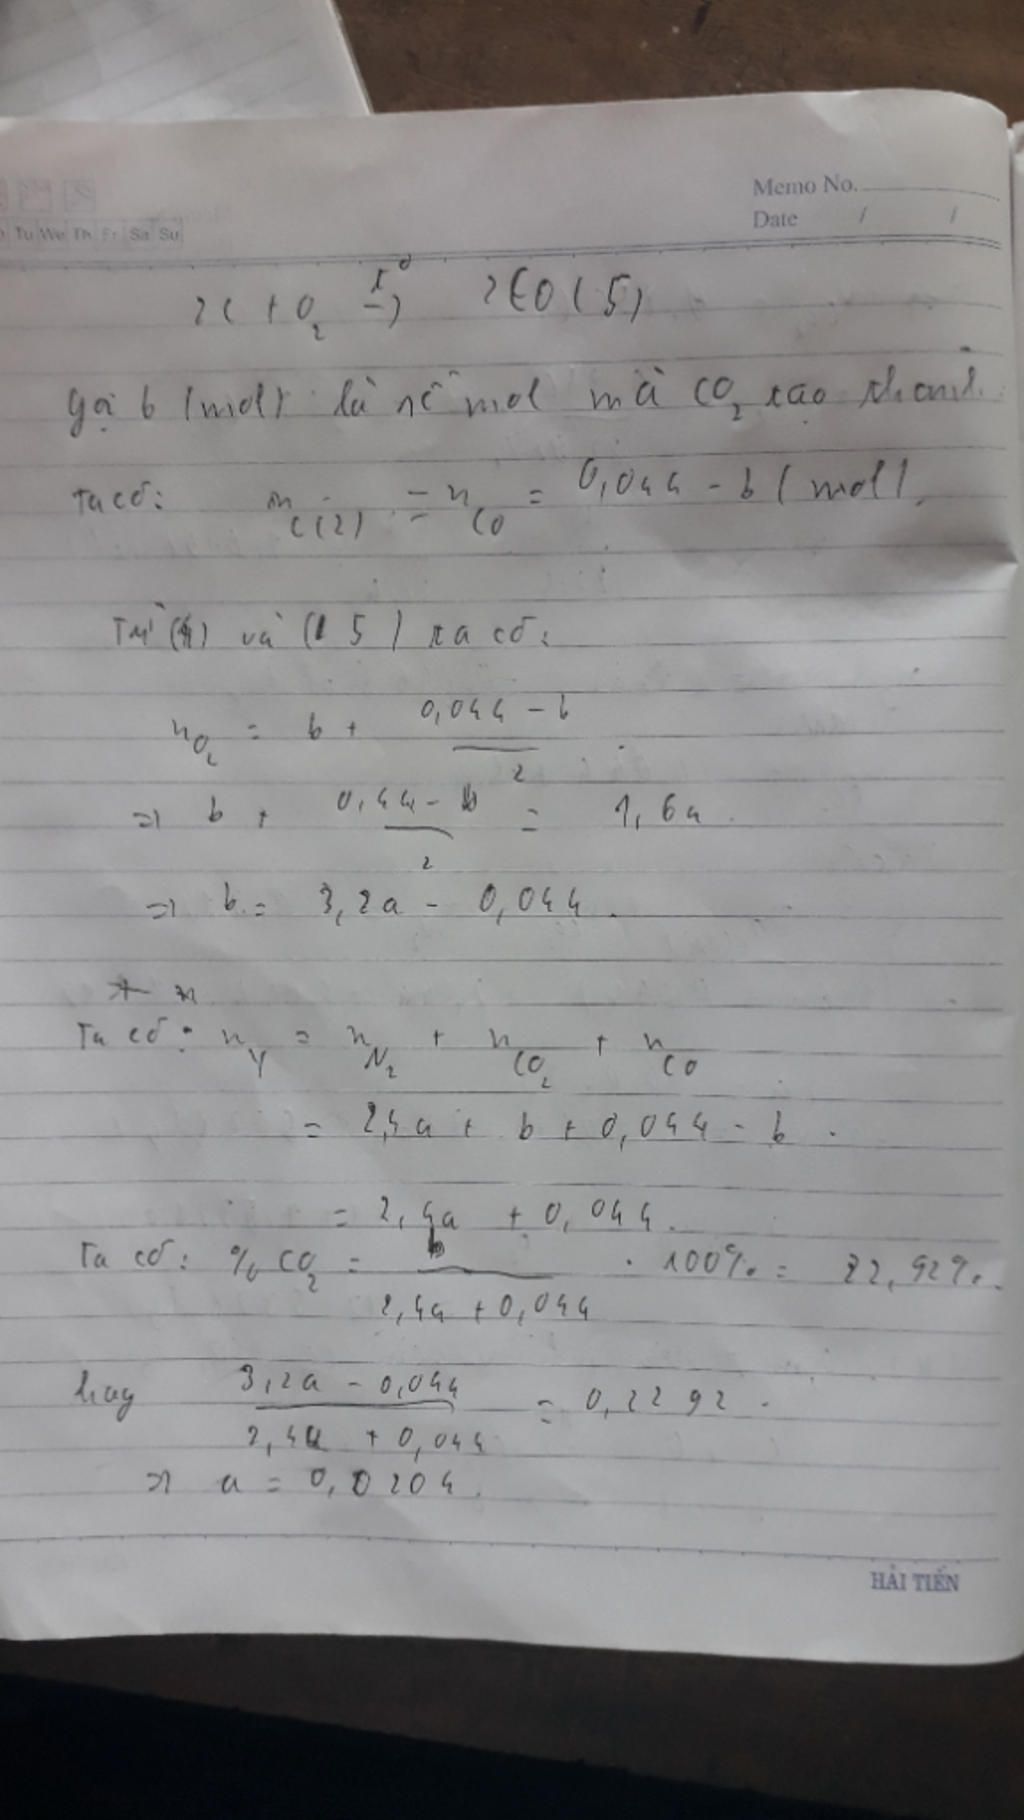 Memo No.
Tu We Th Fr Sa Su
Date / /
2C + O2 t° → 2CO (5)
Gọi b (mol) là số mol mà CO2 tạo thành.
Ta có: n C(2) = n CO = 0,044 - b (mol).
Từ (4) và (5) ta có:
nO2 = b + (0,044 - b)/2
=> b + (0,44 - b)/2 = 1,6a.
=> b = 3,2a - 0,044.
Ta có: nY = nN2 + nCO2 + nCO
= 2,4a + b + 0,044 - b.
= 2,4a + 0,044.
Ta có: %CO2 = b/(2,4a + 0,044) . 100% = 22,92%.
hay (3,2a - 0,044)/(2,4a + 0,044) = 0,2292.
=> a = 0,0204.
HẢI TIẾN